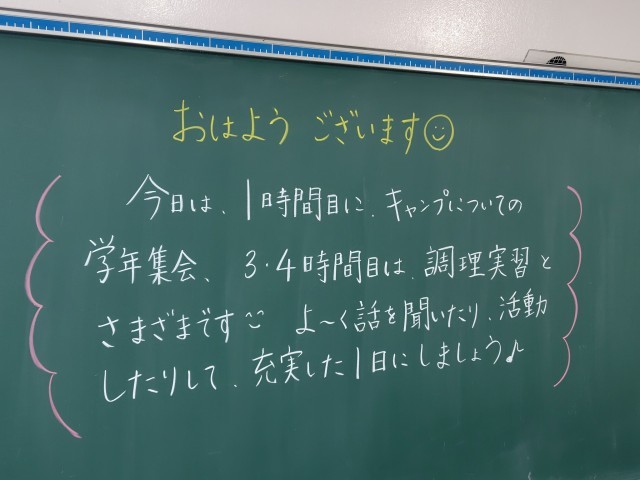 おはよう ございます☺
今日は、1時間目に、キャンプについての
学年集会、3・4時間目は、調理実習と
さまざまです こよ〜く話を聞いたり、活動
したりして、充実した1日にしましょう♪